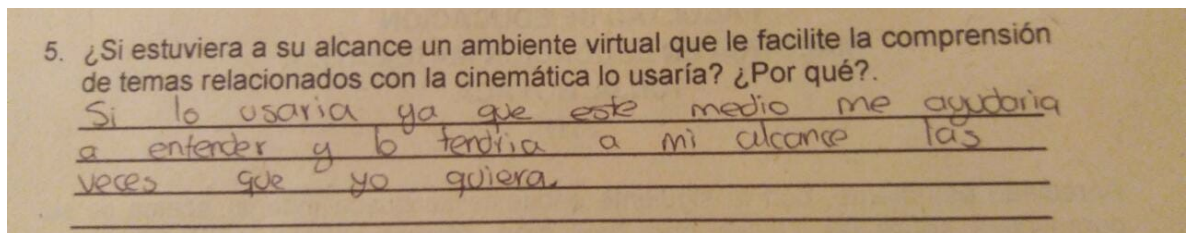 5. ¿Si estuviera a su alcance un ambiente virtual que le facilite la comprensión
de temas relacionados con la cinemática lo usaría? ¿Por qué?.
Si lo usaria ya que este medio me ayudaria
a entender y lo tendria a mi alcance las
veces que yo quiera.